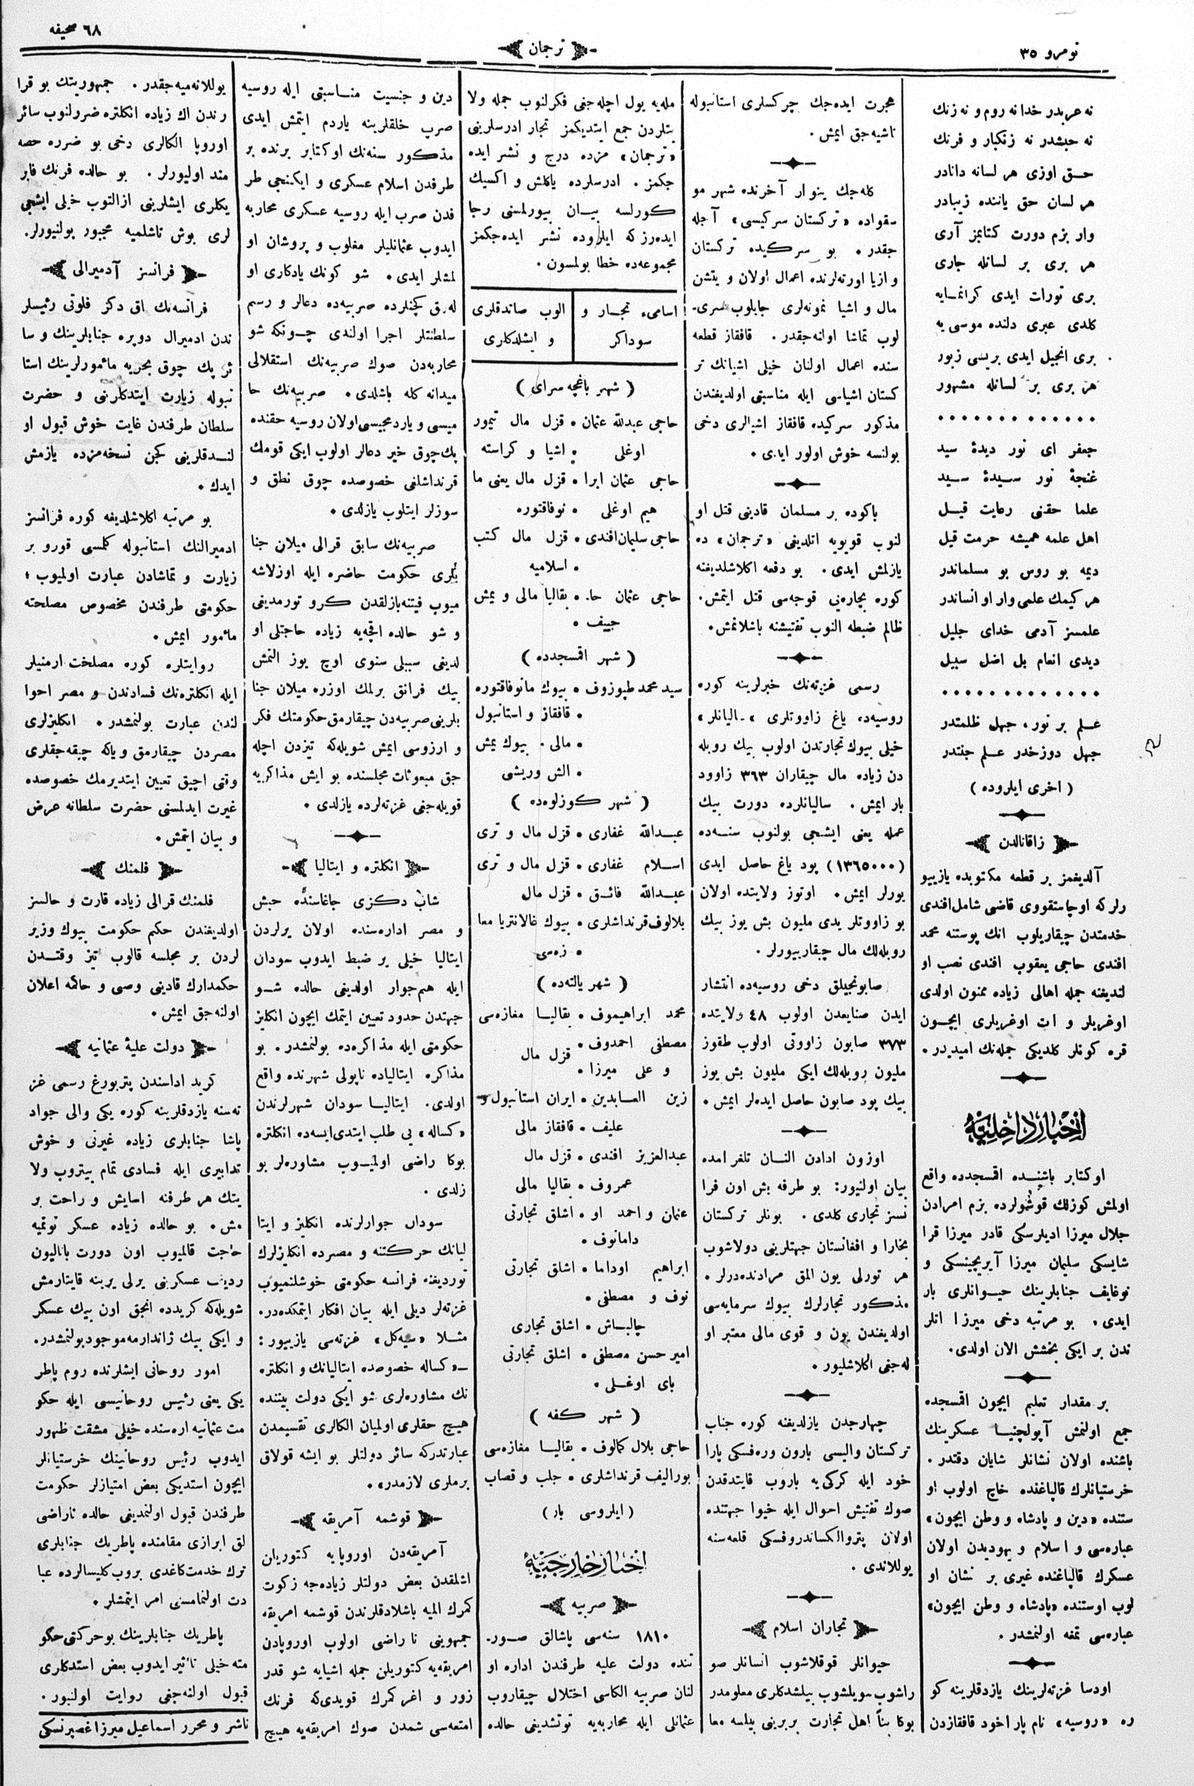 نومرو ٣٥
ترجمان
٦٨ صحيفه
نه عربدر خدا نه روم و نه زنك
نه حبشدر نه زنكبار و فرنك
حق اوزى هر لسانه دانادر
هر لسان حق ياننده زيبادر
وار بزم دورت كتابمز آرى
هر برى بر لسانله جارى
برى تورات ايدى كرانمايه
كلدى عبرى دلنده موسى يه
برى انجيل ايدى بريسى زبور
هر برى بر لسانله مشهور
جعفر اى نور ديدهٔ سيد
غنچهٔ نور سيدهٔ سيد
علما حقنى رعايت قيل
اهل علمه هميشه حرمت قيل
ديمه بو روس بو مسلماندر
هر كيمك علمى وار او انساندر
علمسز آدمى خداى جليل
ديدى انعام بل اضل سبيل
علم بر نور، جهل ظلمتدر
جهل دوزخدر علم جنتدر
( اخرى ايلروده )
زاقاتالدن
آلديغمز بر قطعه مكتوبده يازييو
رلر كه اوچاستقووى قاضى شامل افندى
خدمتدن چيقاريلوب انك يوستنه محمد
افندى حاجى يعقوب افندى نصب او
لنديغنه جمله اهالى زياده ممنون اولدى
اوغريلر و ات اوغريلرى ايچون
قره كونلر كلديكى جمله‌نك اميديدر.
اخبار داخليه
اوكتابر باشنده اقمسجدده واقع
اولمش كوزلك قوشولرده بزم امرادن
جلال ميرزا اديلرسكى قادر ميرزا قرا
شايسكى سليمان ميرزا آيريچينسكى و
نوغايف جنابلرينك حيوانلرى بار
ايدى. بو مرتبه دخى ميرزا انلر
ندن بر ايكى بخشش الان اولدى.
بر مقدار تعليم ايچون اقمسجده
جمع اولنمش آپولچينيا عسكرينك
باشنده اولان نشانلر شايان دقتدر.
خرستيانلرك قالپاغنده خاچ اولوب او
ستنده «دين و پادشاه و وطن ايچون»
عباره‌سى و اسلام و يهوديدن اولان
عسكرك قالپاغنده غيرى بر نشان او
لوب اوستنده «پادشاه و وطن ايچون»
عباره‌سى تمغه اولنمشدر.
اودسا غزته‌لرينك يازدقلرينه كو
ره «روسيه» نام پاراخود قافقازدن
هجرت ايده‌جك چركسلرى استانبوله
تاشيه‌جق ايمش.
كله‌جك ينوار آخرنده شهر مو
سقواده «تركستان سركيسى» آچله
جقدر. بو سركيده تركستان
و ازيا اورته‌لرنده اعمال اولان و يتشن
مال و اشيا نمونه‌لرى جايلوب سرى‌
لوب تماشا اولنه‌جقدر. قافقاز قطعه
سنده اعمال اولنان خيلى اشيانك تر
كستان اشياسى ايله مناسبتى اولديغندن
مذكور سركيده قافقاز اشيالرى دخى
بولنسه خوش اولور ايدى.
باكوده بر مسلمان قادينى قتل او
لنوب قويويه اتلديغى «ترجمان» ده
يازلمش ايدى. بو دفعه اكلاشلديغنه
كوره بچاره‌يى قوجه‌سى قتل ايتمش.
ظالم ضبطه النوب تفتيشنه باشلانمش.
رسمى غزته‌نك خبرلرينه كوره
روسيه‌ده ياغ زاووتلرى
خيلى بيوك تجارتدن اولوب بيك روبله
دن زياده مال چيقاران ٣٦٣ زاوود
بار ايمش. ساليانلرده دورت بيك
عمله يعنى ايشجى بولنوب سنه‌ده
(١٣٦٥٠٠٠) پود ياغ حاصل ايدى
يورلر ايمش. اوتوز ولايتده اولان
بو زاووتلر يدى مليون بش يوز بيك
روبله‌لك مال چيقاريبورلر.
صابونجيلق دخى روسيه‌ده انتشار
ايدن صنايعدن اولوب ٤٨ ولايتده
٣٧٣ صابون زاووتى اولوب طقوز
مليون روبله‌لك ايكى مليون بش يوز
بيك پود صابون حاصل ايده‌لر ايمش.
اوزون ادادن النان تلغرامده
بيان اولنيور: بو طرفه بش اون فرا
نسز تجارى كلدى. بونلر تركستان
بخارا و افغانستان جهتلرينى دولاشوب
هر تورلى يون المق مرادنده‌درلر.
مذكور تجارلرك بيوك سرمايه‌سى
اولديغندن يون و قوى مالى معتبر او
له‌جغى اكلاشليور.
چهارجدن يازلديغنه كوره جناب
تركستان واليسى بارون وره‌فسكى پارا
خود ايله كركى يه باروب قايتدقدن
صوك تفتيش احوال ايله خيوا جهتنده
اولان پتروالكساندروفسكى قلعه‌سنه
يوللاندى.
تجاران اسلام
حيوانلر قوقلاشوب انسانلر صو
راشوب‌سويلشوب بيلشدكلرى معلومدر
بوكا بناً اهل تجارت بربرينى بيلسه معا
مله‌يه يول اچله‌جغى فكرلنوب جمله ولا
يتلردن جمع ايتديكمز تجار ادرسلرينى
«ترجمان» مزده درج و نشر ايده
جكمز. ادرسلرده ياكلش و اكسيك
كورلسه بيان بيورلمسنى رجا
ايده‌رز كه ايلروده نشر ايده‌جكمز
مجموعه‌ده خطا بولمسون.
اسامىء تجار و سوداكر
الوب صاتدقلرى و ايشلدكلرى
( شهر باغچه سراى )
حاجى عبدالله عثمان • قزل مال تيمور
اوغلى • اشيا و كراسته
حاجى عثمان ابرا • قزل مال يعنى ما
هيم اوغلى • نوفاقتوره
حاجى سليمان افندى • قزل مال كتب
• اسلاميه
حاجى عثمان حا • بقاليا مالى و يمش
جييف •
( شهر اقمسجدده )
سيد محمد طيوزوف • بيوك مانوفاقتوره
• قافقاز و استانبول
• مالى. بيوك يمش
• الش وريشى
( شهر كوزلوه‌ده )
عبدالله غفارى • قزل مال و ترى
اسلام غفارى • قزل مال و ترى
عبدالله فائق • قزل مال
بلالوف قرنداشلرى • بيوك غالانتريا معا
• زه‌سى
( شهر يالته‌ده )
محمد ابراهيموف • بقاليا مغازه‌سى
مصطفى احمدوف •
و على ميرزا • قزل مال
زين العابدين • ايران استانبول و
عليف • قافقاز مالى
عبدالعزيز افندى • قزل مال
عمروف • بقاليا مالى
عثمان و احمد او • اشلق تجارتى
دامانوف •
ابراهيم اوداما • اشلق تجارتى
نوف و مصطفى •
چالباش • اشلق تجارى
امير حسن مصطفى • اشلق تجارتى
باى اوغلى •
( شهر كفه )
حاجى بلال كمالوف • بقاليا مغازه‌سى
بوراليف قرنداشلرى • جلب و قصاب
( ايلروسى بار )
اخبار خارجيه
صربيه
١٨١٠ سنه‌سى پاشالق صور
تنده دولت عليه طرفندن اداره او
لنان صربيه الكاسى اختلال چيقاروب
عثمانلى ايله محاربه‌يه توتشديغى حالده
دين و جنسيت مناسبتى ايله روسيه
صرب خلقلرينه ياردم ايتمش ايدى
مذكور سنه‌نك اوكتابر برنده بر
طرفدن اسلام عسكرى و ايكنجى طر
فدن صرب ايله روسيه عسكرى محاربه
ايدوب عثمانليلر مغلوب و پروشان او
لمشلر ايدى. شو كونك يادكارى او
له‌رق كچنلرده صربيه‌ده دعالر و رسم
سلطنتلر اجرا اولندى چونكه شو
محاربه‌دن صوك صربيه‌نك استقلالى
ميدانه كله باشلدى. صربيه‌نك حا
ميسى و ياردمجيسى اولان روسيه حقنده
پك چوق خير دعالر اولوب ايكى قومك
قرنداشلغى خصوصده چوق نطق و
سوزلر ايتلوب يازلدى.
صربيه‌نك سابق قرالى ميلان جنا
بلرى حكومت حاضره ايله اوزلاشه
ميوب فيتنه‌بازلقدن كرو تورمديغى
و شو حالده اقچه‌يه زياده حاجتلى او
لديغى سببلى سنوى اوچ يوز التمش
بيك فرانق برلمك اوزره ميلان جنا
بلرينى صربيه‌دن چيقارمق حكومتك فكر
و ارزوسى ايمش شويله‌كه تيزدن اچله
جق مبعوثات مجلسنده بو ايش مذاكريه
قويله‌جغى غزته‌لرده يازلدى.
انكلتره و ايتاليا
شاپ دكزى جاغاسنده حبش
و مصر اداره‌سنده اولان يرلردن
ايتاليا خيلى ير ضبط ايدوب سودان
ايله هم‌جوار اولديغى حالده شو
جهتدن حدود تعيين ايتمك ايچون انكليز
حكومتى ايله مذاكره‌ده بولنمشدر. بو
مذاكره ايتالياده ناپولى شهرنده واقع
اولدى. ايتاليا سودان شهرلرندن
«كساله» يى طلب ايتدى ايسه‌ده انكلتره
بوكا راضى اولميوب مشاوره‌لر بو
زلدى.
سودان جوارلرنده انكليز و ايتا
ليانك حركتنه و مصرده انكليزلرك
تورديغنه فرانسه حكومتى خوشلنميوب
غزته‌لر ديلى ايله بيان افكار ايتمكده‌در.
مثلا «سيه‌كل» غزته‌سى يازييور:
ـ «كساله خصوصده ايتاليانك و انكلتره
نك مشاوره‌لرى شو ايكى دولت بيننده
هيچ حقلرى اولميان الكالرى تقسيمدن
عبارتدركه سائر دولتلر بو ايشه قولاق
برملرى لازمدر»
قوشمه آمريقه
آمريقه‌دن اوروپايه كتوريلن
اشلقدن بعض دولتلر زياده‌جه زكوت
كمرك الميه باشلادقلرندن قوشمه امريقه
جمهوينى ناراضى اولوب اوروپادن
امريقه‌يه كتوريلن جمله اشيايه شو قدر
زور و اغر كمرك قويدى‌كه فرنك
امتعه‌سى شمدن صوك امريقه‌يه هيچ
يوللانه‌ميه‌جقدر. جمهوريتك بو قرا
رندن اك زياده انكلتره ضررلنوب سائر
اوروپا الكالرى دخى بو ضرره حصه
مند اوليورلر. بو حالده فرنك فابر
يكلرى ايشلرينى ازالتوب خيلى ايشجى
لرى بوش تاشلميه مجبور بولنيورلر.
فرانسز آدميرالى
فرانسه‌نك اق دكز فلوتى رئيسلر
ندن ادميرال دوپره جنابلرينك و سا
ئر پك چوق بحريه مأمورلرينك استا
نبوله زيارت ايتدكلرنى و حضرت
سلطان طرفندن غايت خوش قبول او
لندقلرينى كچن نسخه‌مزده يازمش
ايدك.
بو مرتبه اكلاشلديغنه كوره فرانسز
ادميرالنك استانبوله كلمسى قورو بر
زيارت و تماشادن عبارت اولميوب؛
حكومتى طرفندن مخصوص مصلحته
مأمور ايمش.
روايتلره كوره مصلخت ارمنيلر
ايله انكلتره‌نك فسادندن و مصر احوا
لندن عبارت بولنمشدر. انكليزلرى
مصردن چيقارمق وياكه چيقه‌جقلرى
وقتى اچيق تعيين ايتديرمك خصوصده
غيرت ايدلمسنى حضرت سلطانه عرض
و بيان ايتمش.
فلمنك
فلمنك قرالى زياده قارت و حالسز
اولديغندن حكم حكومت بيوك وزير
لردن بر مجلسه قالوب تيز وقتدن
حكمدارك قادينى وصى و حاكمه اعلان
اولنه‌جق ايمش.
دولت عليهٔ عثمانيه
كريد اداسندن پتربورغ رسمى غز
ته‌سنه يازدقلرينه كوره يكى والى جواد
پاشا جنابلرى زياده غيرتى و خوش
تدابيرى ايله فسادى تمام بيتروب ولا
يتك هر طرفنه اسايش و راحت بر
مش. بو حالده زياده عسكر توتميه
حاجت قالميوب اون دورت باتاليون
رديف عسكرينى يرلى يرينه قايتارمش
شويله‌كه كريدده انجق اون بيك عسكر
و ايكى بيك ژاندارمه موجود بولنمشدر.
امور روحانى ايشلرنده روم پاطر
يكى يعنى رئيس روحانيسى ايله حكو
مت عثمانيه اره‌سنده خيلى مشقت ظهور
ايدوب رئيس روحانينك خرستيانلر
ايچون استديكى بعض امتيازلر حكومت
طرفندن قبول اولنمديغى حالده ناراضى
لق ابرازى مقامنده پاطريك جنابلرى
ترك خدمت كاغدى بروب كليسالرده عبا
دت اولنمامسنى امر ايتمشلر.
پاطريك جنابلرينك بو حركتى حكو
مته خيلى تأثير ايدوب بعض استدكلرى
قبول اولنه‌جغى روايت اولنيور.
ناشر و محرر اسماعيل ميرزا غصپرنسكى